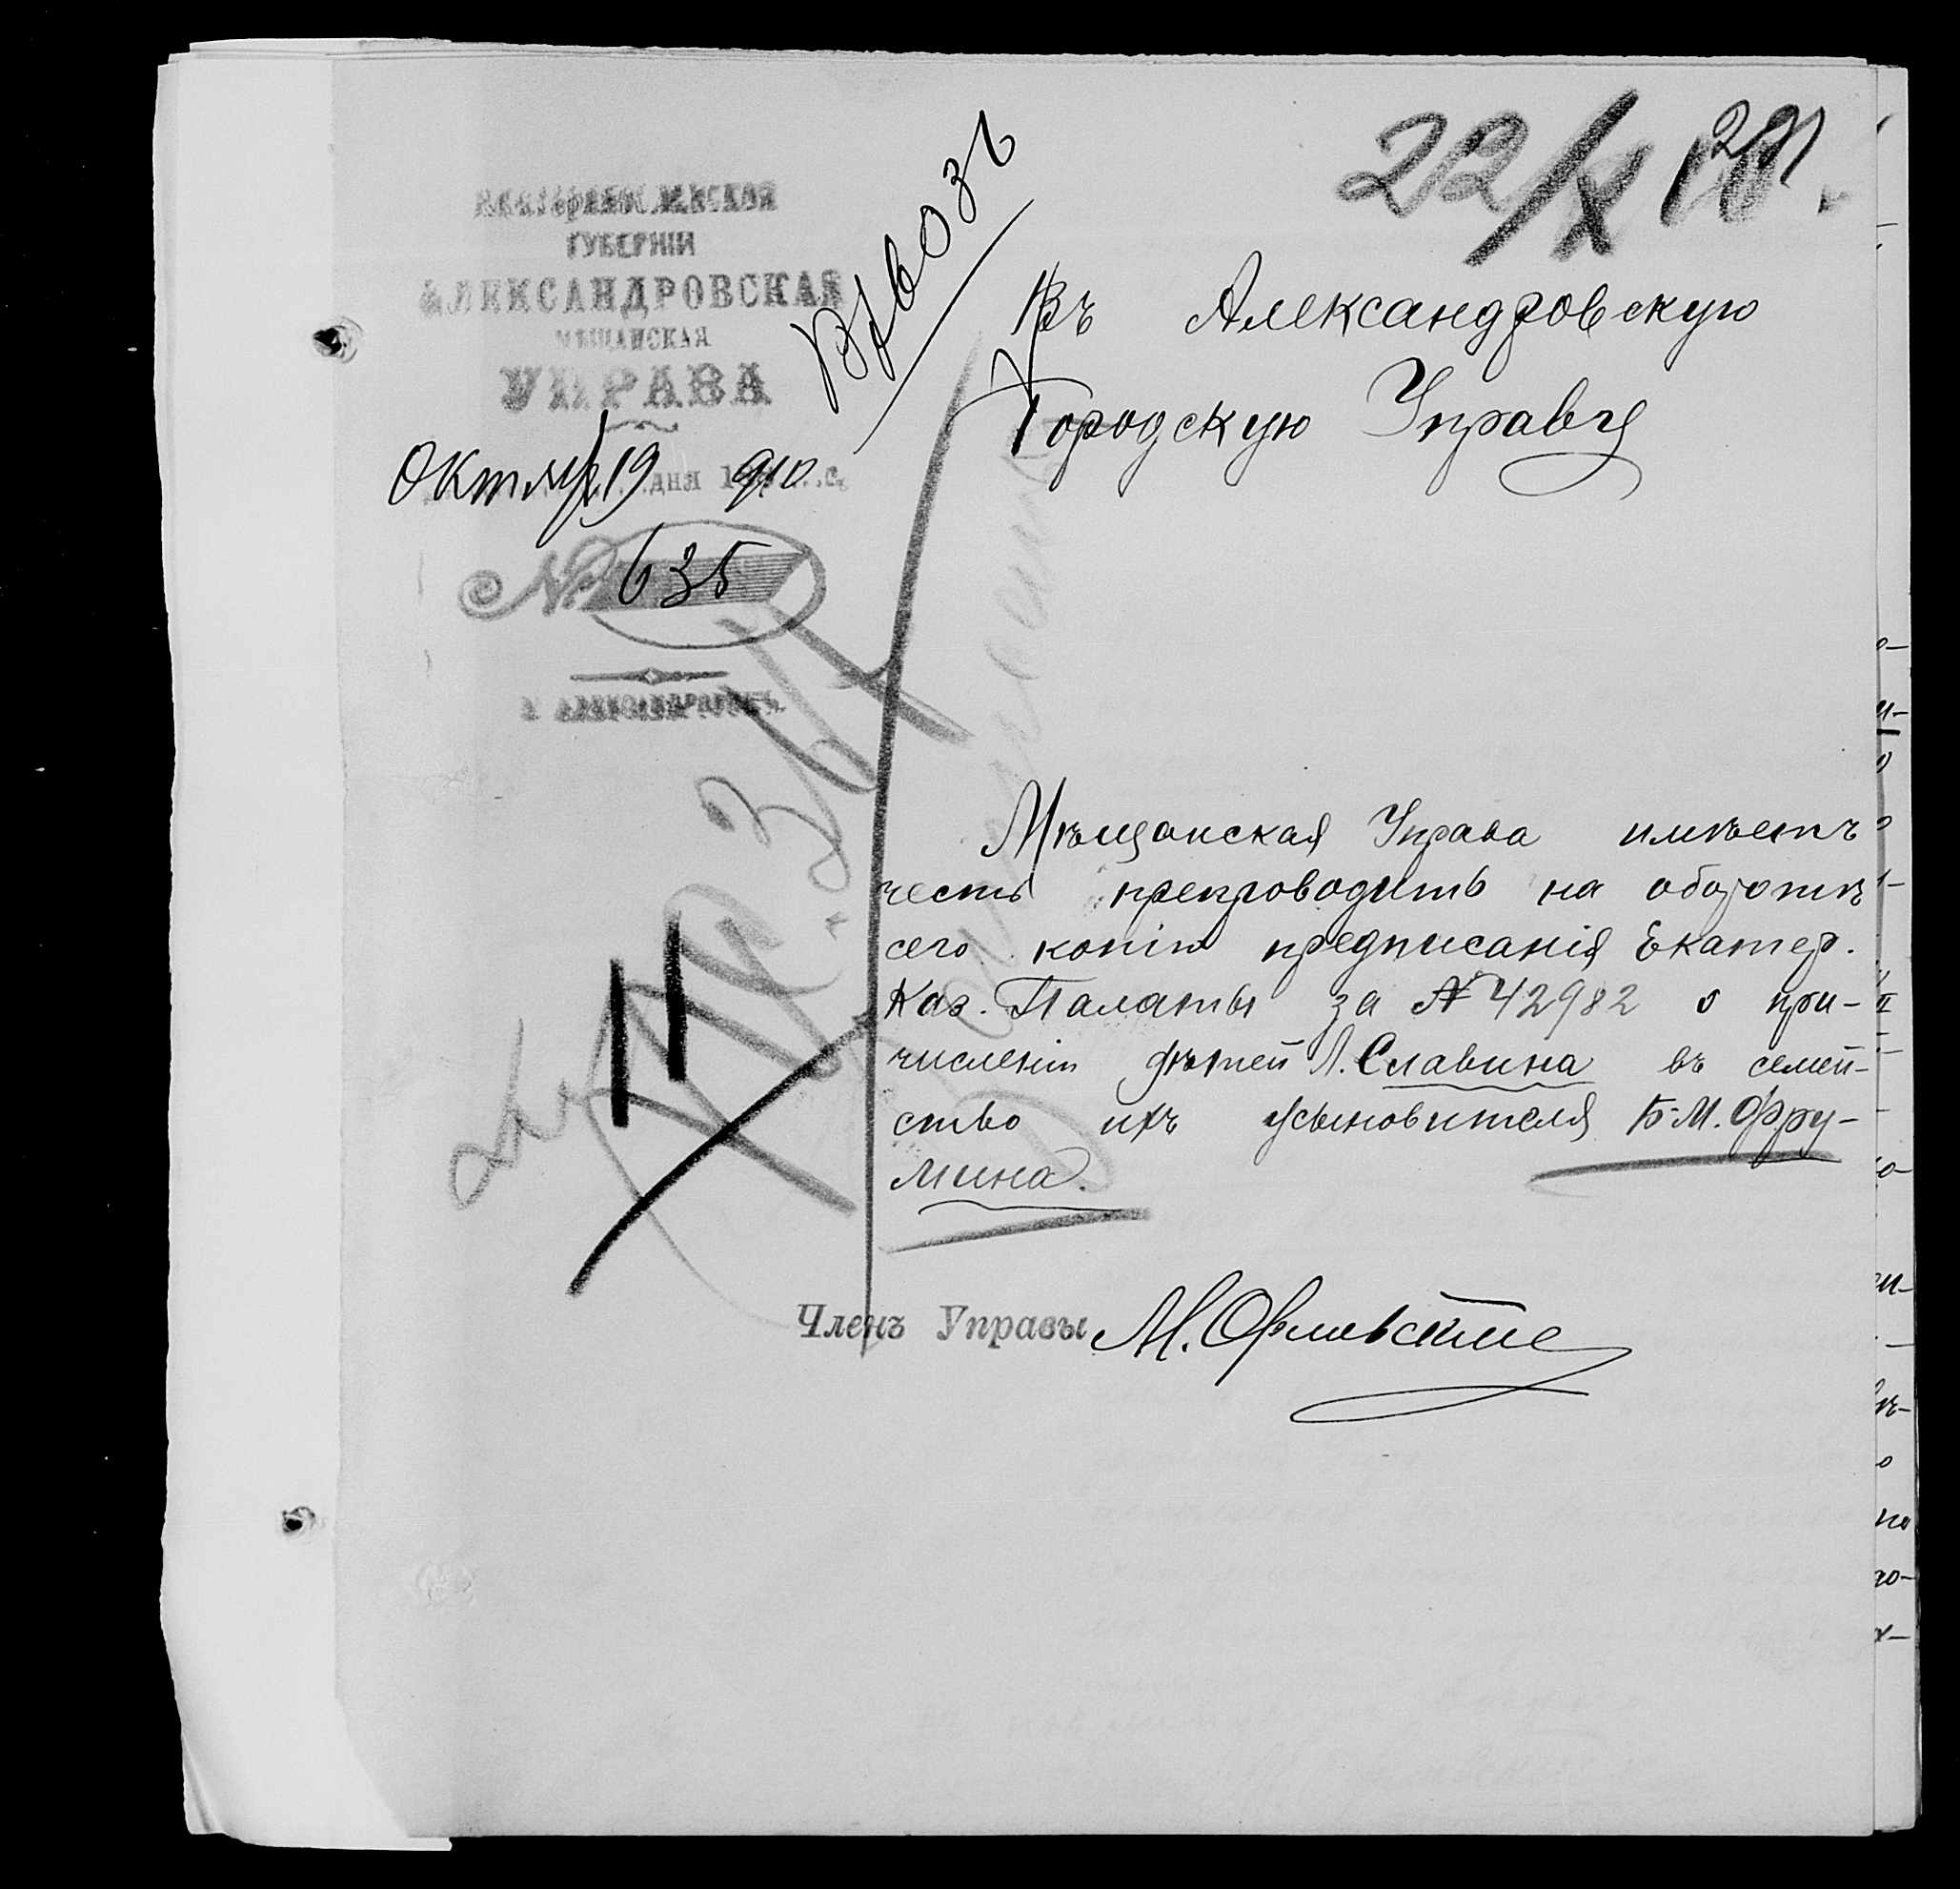 ЕКАТЕРИНОСЛАВСКОЙ
ГУБЕРНІИ
АЛЕКСАНДРОВСКАЯ
МѢЩАНСКАЯ
УПРАВА
Октяб 19 дня 1910 г.
№ 635
Г. АЛЕКСАНДРОВСКЪ.
22/X 10 г.
291
Въ Александровскую
Городскую Управу
Мѣщанская Управа имѣетъ
честь препроводить на оборотѣ
сего копію предписанія Екатер.
Каз. Палаты за № 42982 о при-
численіи дѣтей Л. Славина въ семей-
ство ихъ усыновителя Б. М. Фру-
мина.
Членъ Управы